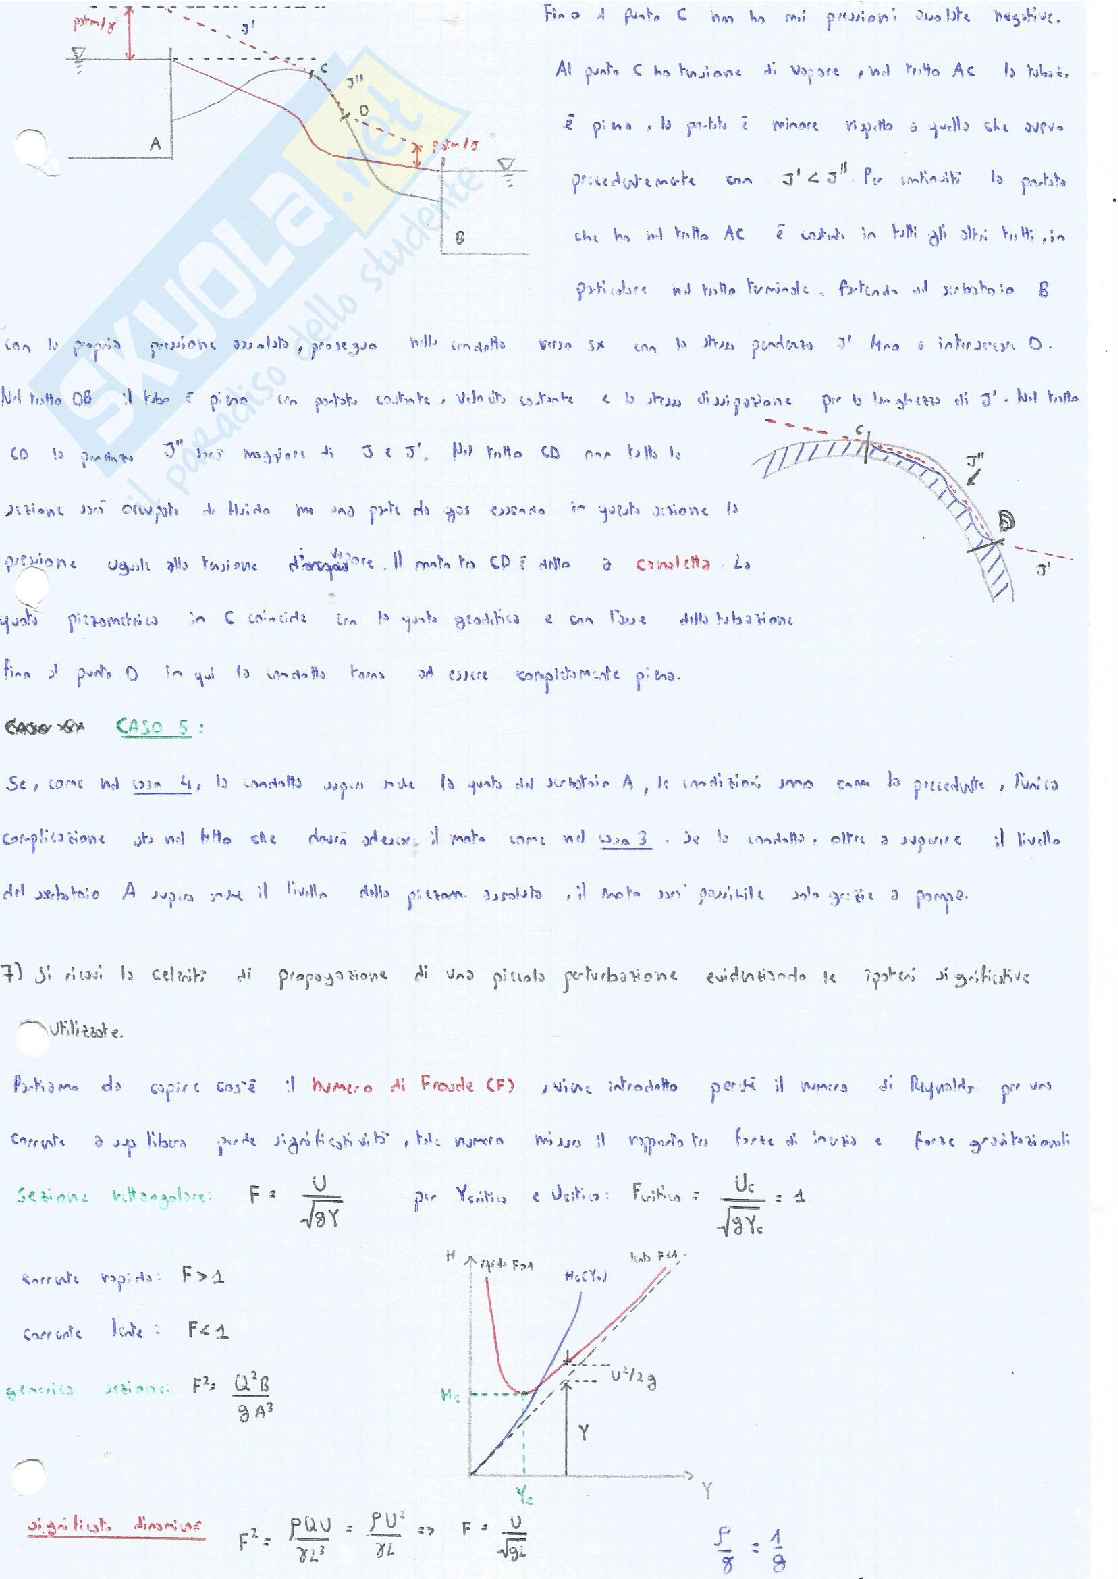 patm/γ
J'
C
J''
D
patm/γ
A
B
Fino al punto C non ho mai pressioni assolute negative.
Al punto C ho tensione di vapore, nel tratto AC la tubaz.
è piena, la portata è minore rispetto a quella che avevo
precedentemente con J' < J''. Per continuità la portata
che ho nel tratto AC è costante in tutti gli altri tratti, in
particolare nel tratto terminale. Partendo dal serbatoio B
con la propria pressione assoluta, proseguo nella condotta verso sx con la stessa pendenza J' fino a intersecare D.
Nel tratto DB il tubo è pieno con portata costante, velocità costante e la stessa dissipazione per la lunghezza di J'. Nel tratto
CD la pendenza J'' sarà maggiore di J e J'. Nel tratto CD non tutta la
sezione sarà occupata da fluido ma una parte da gas essendo in questa sezione la
pressione uguale alla tensione di vapore. Il moto tra CD è detto a canaletta. La
quota piezometrica in C coincide con la quota geodetica e con l'asse della tubazione
fino al punto D in cui la condotta torna ad essere completamente piena.
C
J''
D
J'
CASO 5:
Se, come nel caso 4, la condotta supera anche la quota del serbatoio A, le condizioni sono come la precedente, l'unica
complicazione sta nel fatto che dovrò adescare il moto come nel caso 3. Se la condotta, oltre a superare il livello
del serbatoio A supera anche il livello della piezom. assoluta, il moto sarà possibile solo grazie a pompe.
7) Si ricavi la celerità di propagazione di una piccola perturbazione evidenziando le ipotesi significative
utilizzate.
Partiamo da capire cos'è il numero di Froude (F), viene introdotto perché il numero di Reynolds per una
corrente a sup libera perde significatività, tale numero misura il rapporto tra forze di inerzia e forze gravitazionali
Sezione rettangolare: F = U/√gY per Ycritica e Ucritica: Fcritico = Uc/√gYc = 1
corrente rapida: F > 1
corrente lenta: F < 1
generica sezione: F² = Q²B/gA³
H
rapida F>1
Hc(Yc)
lenta F<1
Hc
U²/2g
Y
Yc
Y
significato dinamico: F² = ρQU/γL³ = ρU²/γL => F = U/√gL ρ/γ = 1/g
SKUOLA.net
il paradiso dello studente